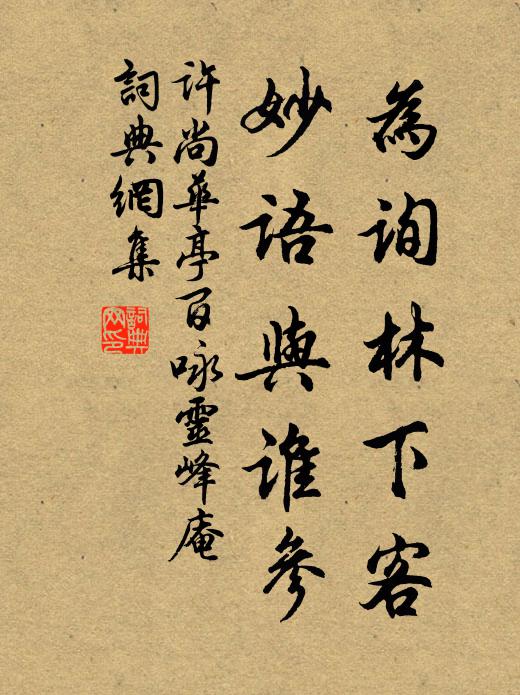 為詢林下客
妙語與誰參
許尚華亭百咏靈峰庵
詞典網集
詞典網印